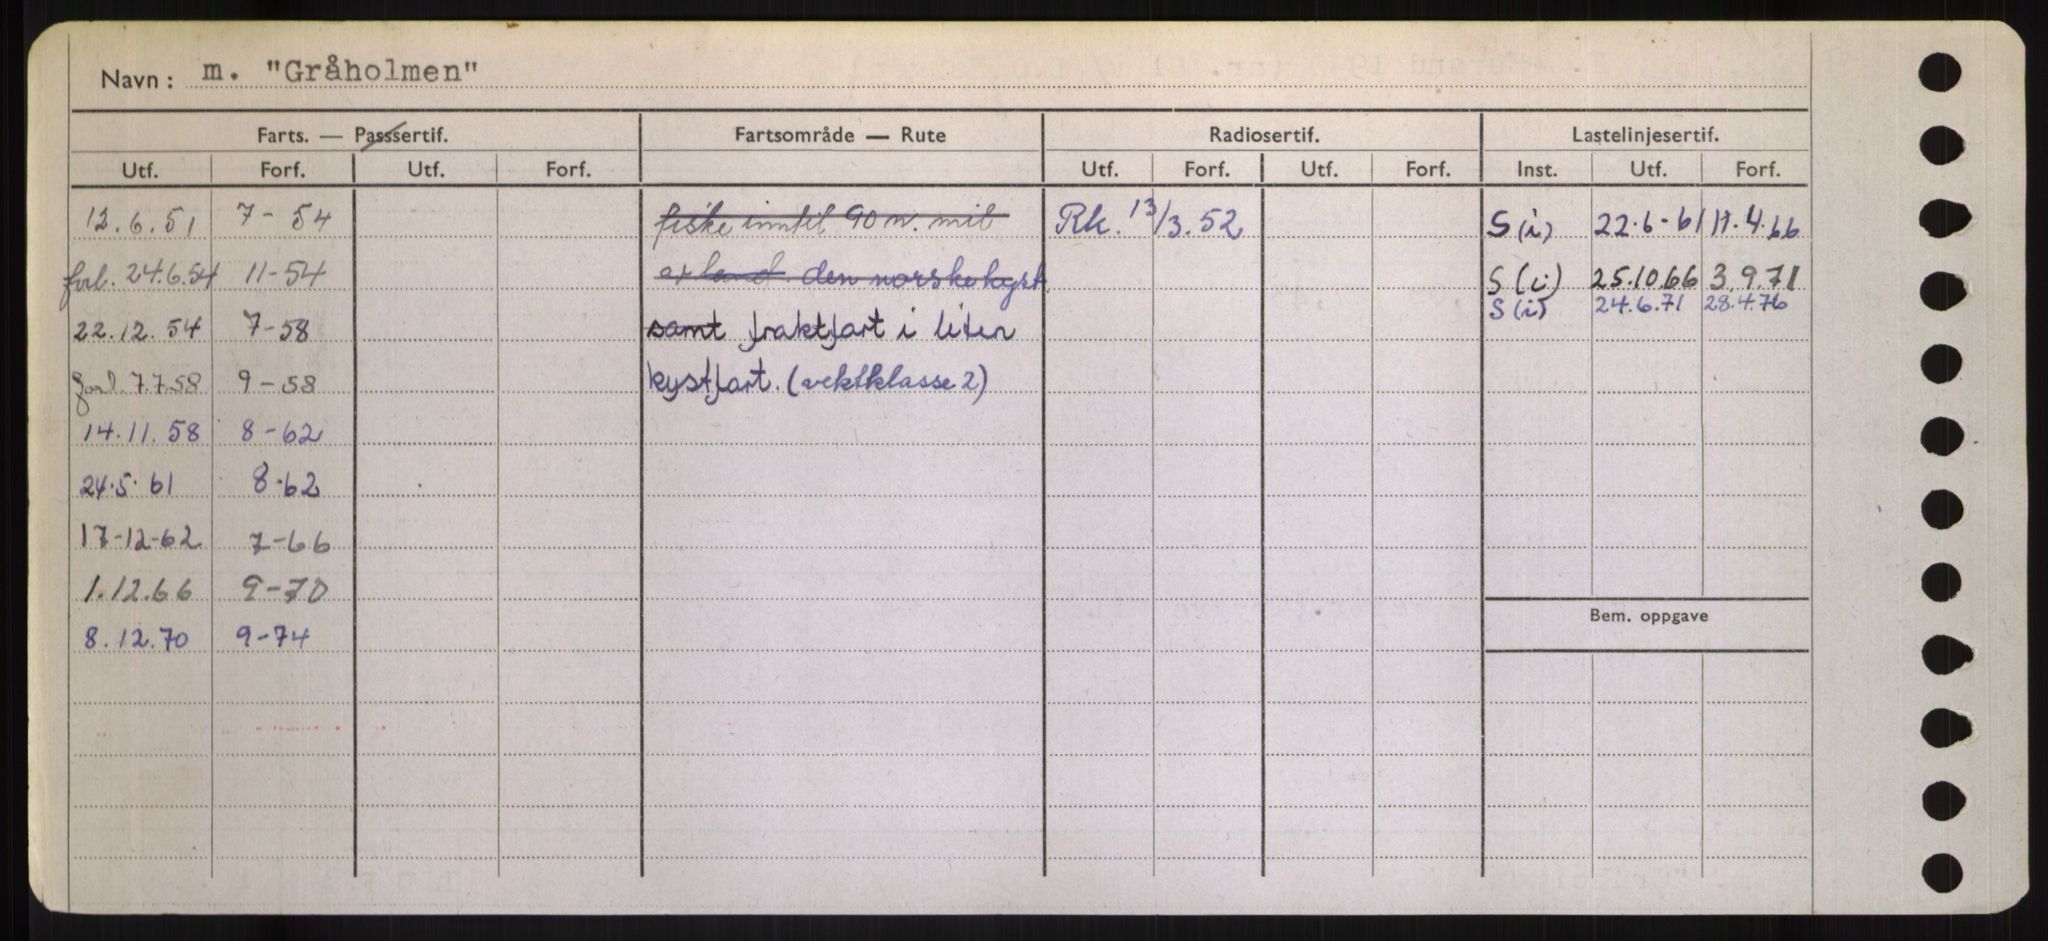 Navn: m. "Gråholmen"
Farts. — Passsertif. Fartsområde — Rute Radiosertif. Lastelinjesertif.
Utf. Forf. Utf. Forf. Utf. Forf. Utf. Forf. Inst. Utf. Forf.
12.6.51 7-54 fiske inntil 90 n. mil Rk. 13/3.52 S(i) 22.6-61 11.4.66
forl. 24.6.54 11-54 av land. den norske kyst S(i) 25.10.66 3.9.71
S(i) 24.6.71 28.4.76
22.12.54 7-58 samt fraktfart i liten
forl. 7.7.58 9-58 kystfart. (vektklasse 2)
14.11.58 8-62
24.5.61 8.62
17-12-62 7-66
1.12.66 9-70
Bem. oppgave
8.12.70 9-74